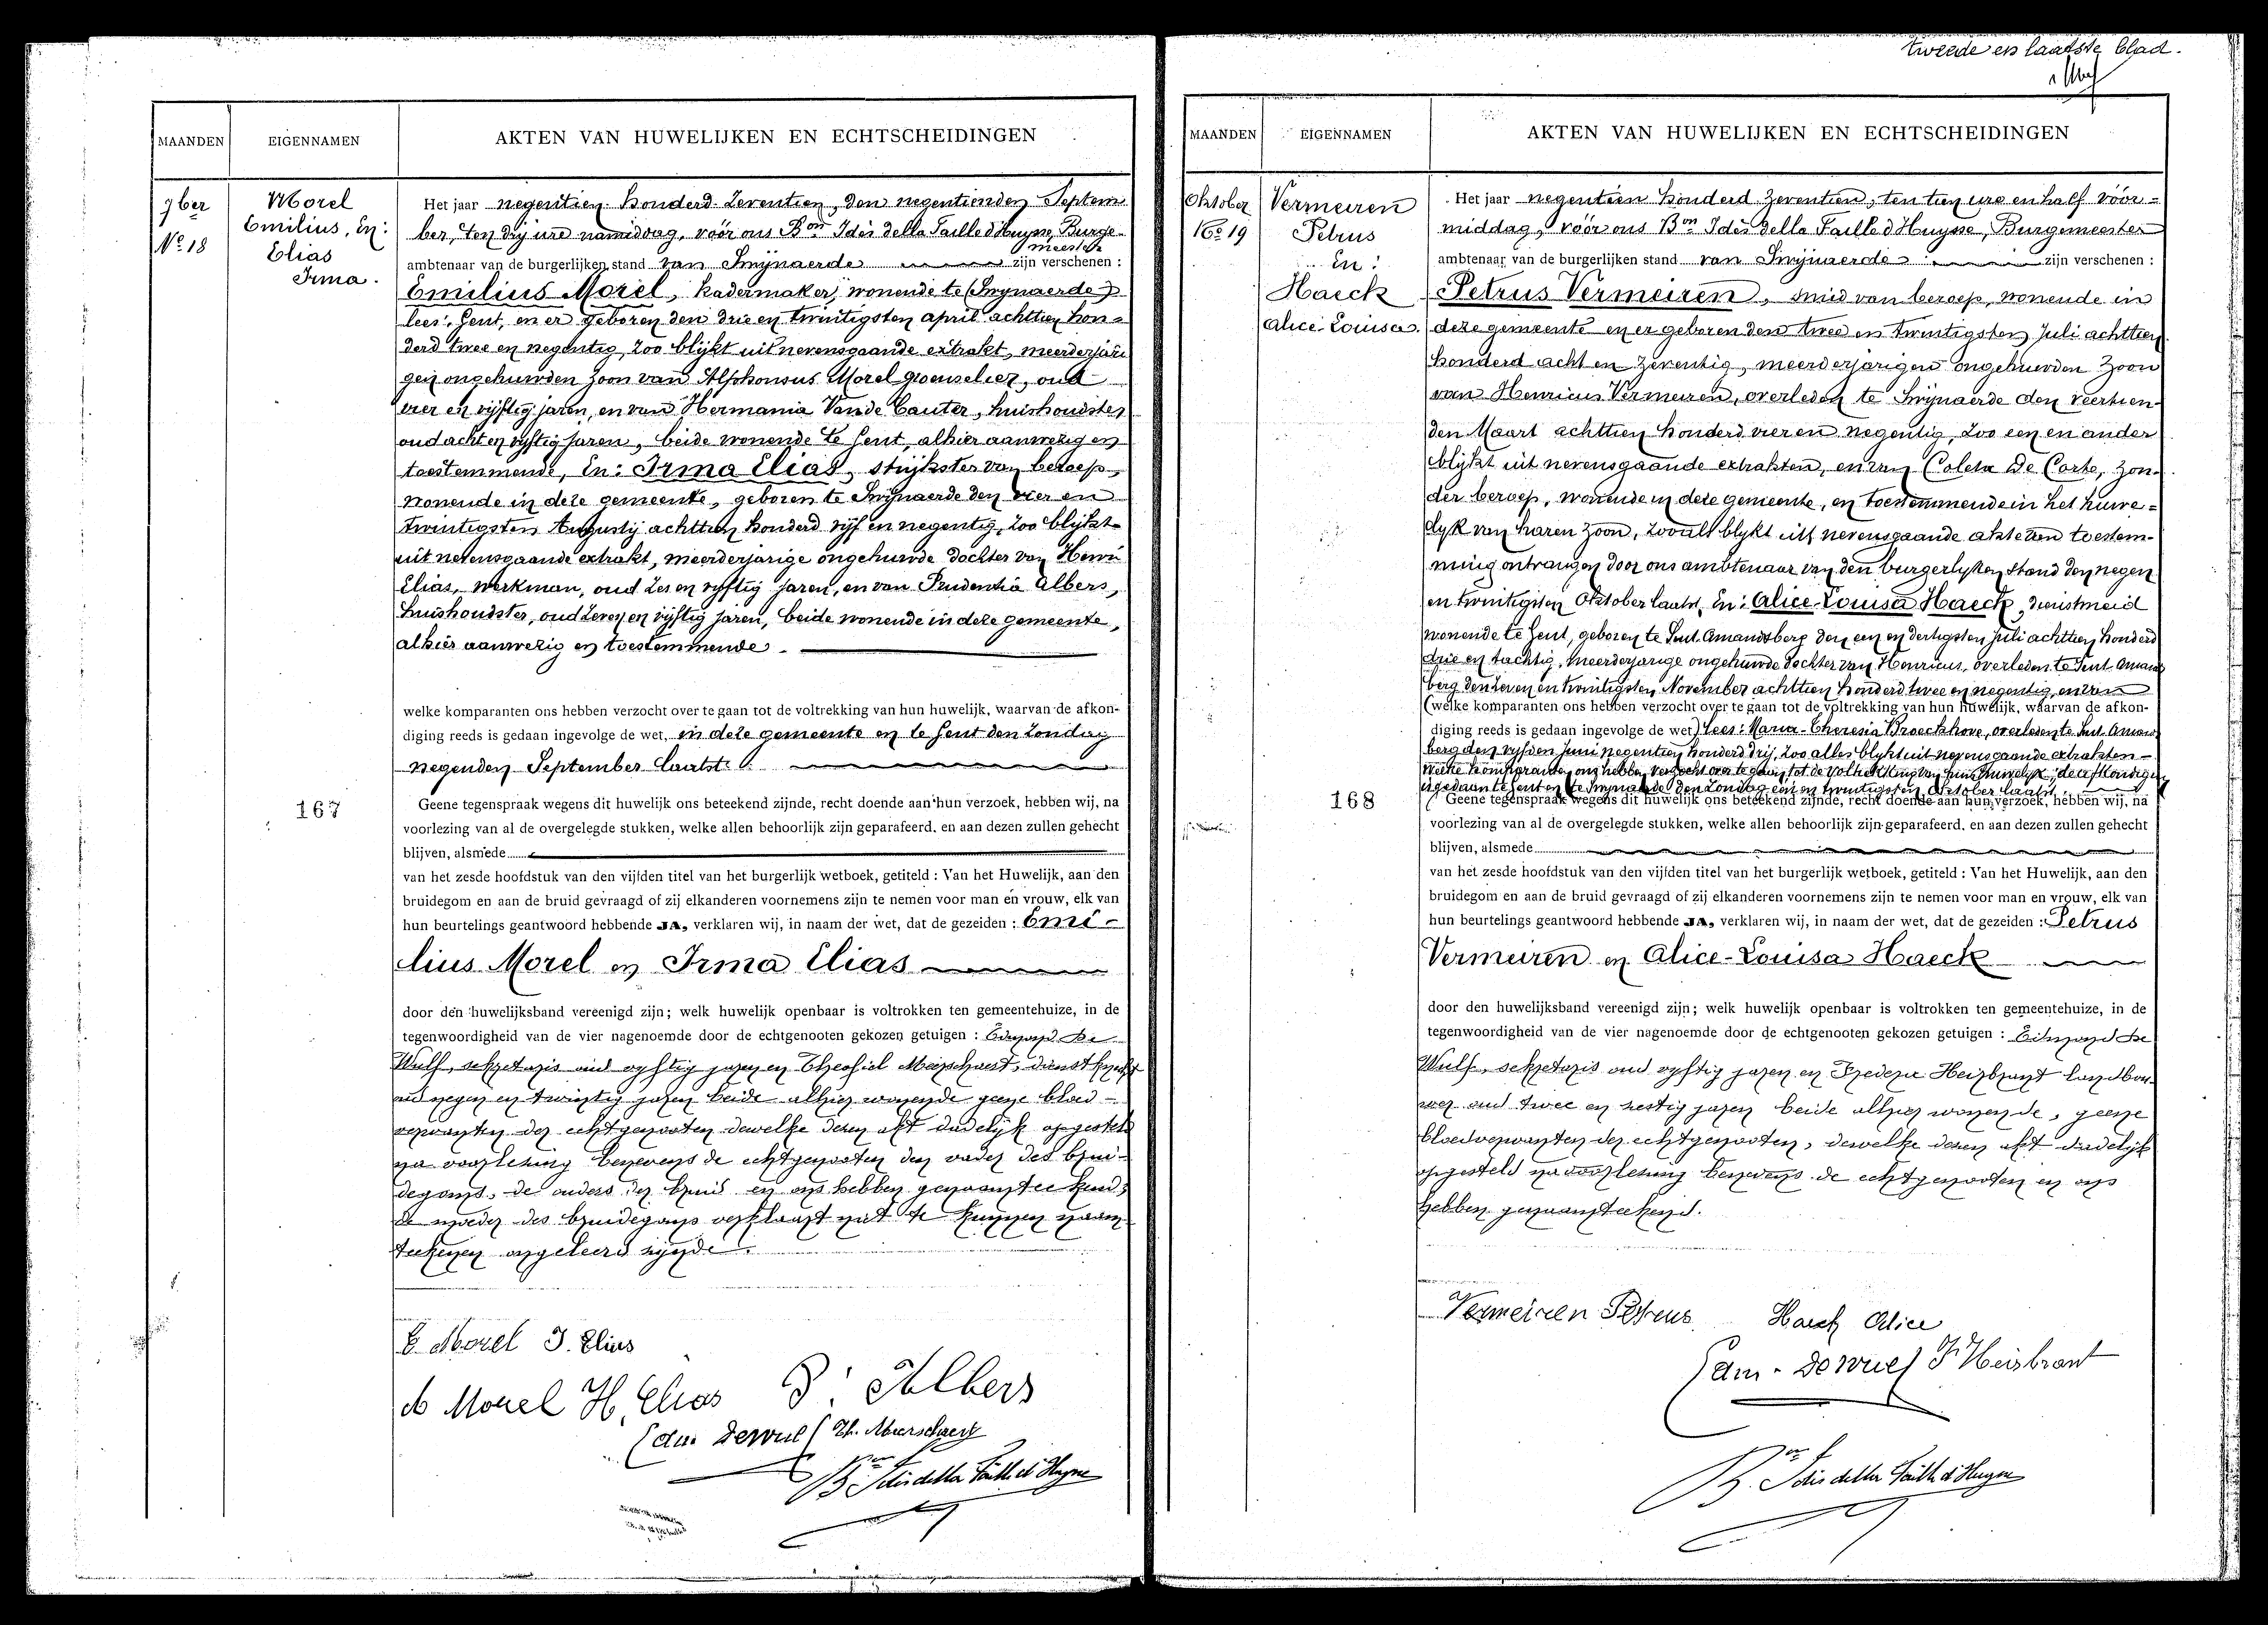 tweede en laatste blad.
MAANDEN
EIGENNAMEN
AKTEN VAN HUWELIJKEN EN ECHTSCHEIDINGEN
7ber
No 18
Morel
Emilius, En:
Elias
Irma.
Het jaar negentien honderd zeventien, den negentienden Septem
ber, ten drij ure namiddag, vóór ons Bon Idès della Faille d'Huysse, Burge-
meester
ambtenaar van de burgerlijken stand van Swijnaerde zijn verschenen :
Emilius Morel, kadermaker, wonende te (Swynaerde)
lees: Gent, en er geboren den drie en twintigsten april achttien hon=
derd twee en negentig, zoo blijkt uit nevensgaande extrakt, meerderjari
gen ongehuwden zoon van Alphonsus Morel groenselier, oud
vier en vijftig jaren, en van Hermania Vande Cauter, huishoudster
oud acht en vyftig jaren, beide wonende te Gent, alhier aanwezig en
toestemmende, En: Irma Elias, strijkster van beroep,
wonende in deze gemeente, geboren te Swijnaerde den vier en
twintigsten Augustij achttien honderd vijf en negentig, zoo blijkt
uit nevensgaande extrakt, meerderjarige ongehuwde dochter van Henri
Elias, werkman, oud zes en vyftig jaren, en van Prudentia Albers,
huishoudster, oud zeven en vijftig jaren, beide wonende in deze gemeente,
alhier aanwezig en toestemmende.
welke komparanten ons hebben verzocht over te gaan tot de voltrekking van hun huwelijk, waarvan de afkon-
diging reeds is gedaan ingevolge de wet, in deze gemeente en te Gent den Zondag
negenden September laatst.
167
Geene tegenspraak wegens dit huwelijk ons beteekend zijnde, recht doende aan hun verzoek, hebben wij, na
voorlezing van al de overgelegde stukken, welke allen behoorlijk zijn geparafeerd, en aan dezen zullen gehecht
blijven, alsmede
van het zesde hoofdstuk van den vijfden titel van het burgerlijk wetboek, getiteld : Van het Huwelijk, aan den
bruidegom en aan de bruid gevraagd of zij elkanderen voornemens zijn te nemen voor man en vrouw, elk van
hun beurtelings geantwoord hebbende JA, verklaren wij, in naam der wet, dat de gezeiden : Emi-
lius Morel en Irma Elias
door den huwelijksband vereenigd zijn; welk huwelijk openbaar is voltrokken ten gemeentehuize, in de
tegenwoordigheid van de vier nagenoemde door de echtgenooten gekozen getuigen : Edmond De
Wulf, sekretaris oud vyftig jaren en Theofiel Meirschaert, dienstknecht
oud negen en twintig jaren beide alhier wonende geene bloed-
verwanten der echtgenooten dewelke dezen akt dadelijk opgesteld
na voorlezing benevens de echtgenooten den vader des brui-
degoms, de ouders der bruid en ons hebben genaamteekend;
de moeder des bruidegoms verklaart niet te kunnen naam-
teekenen ongeleerd zijnde.
E Morel I. Elias
A Morel H, Elias P. Albers
Edm. Dewulf Th. Meerschaert
Bon Idès della Faille d'Huysse
MAANDEN
EIGENNAMEN
AKTEN VAN HUWELIJKEN EN ECHTSCHEIDINGEN
Oktober
No 19
Vermeiren
Petrus
En:
Haeck
Alice-Louisa.
Het jaar negentien honderd zeventien, ten tien ure en half vóór=
middag, vóór ons Bon Idès della Faille d'Huysse, Burgemeester
ambtenaar van de burgerlijken stand van Swijnaerde zijn verschenen :
Petrus Vermeiren, smid van beroep, wonende in
deze gemeente en er geboren den twee en twintigsten Juli achttien
honderd acht en zeventig, meerderjarigen ongehuwden zoon
van Henricus Vermeiren, overleden te Swijnaerde den veertien-
den Maart achttien honderd vier en negentig, zoo een en ander
blijkt uit nevensgaande extrakten, en van Coleta De Corte, zon-
der beroep, wonende in deze gemeente, en toestemmende in het huwe=
lyk van haren zoon, zooals blykt uit nevensgaande akte van toestem-
ming ontvangen door ons ambtenaar van den burgerlyken stand den negen
en twintigsten Oktober laatst, En: Alice-Louisa Haeck, dienstmeid
wonende te Gent, geboren te Sint Amandsberg den een en dertigsten Juli achttien honderd
drie en tachtig, meerderjarige ongehuwde dochter van Henricus, overleden te Sint Amands
berg den zeven en twintigsten November achttien honderd twee en negentig, en van
(welke komparanten ons hebben verzocht over te gaan tot de voltrekking van hun huwelijk, waarvan de afkon-
diging reeds is gedaan ingevolge de wet) Lees: Maria-Theresia Broeckhove, overleden te Sint Amands
berg den vijfden Juni negentien honderd drij, zoo alles blykt uit nevensgaande extrakten -
welke komparanten ons hebben verzocht over te gaan tot de voltrekking van hun huwelyk, de afkondiging
is gedaan te Gent en te Swynaerde den Zondag een en twintigsten Oktober laatst.
168
Geene tegenspraak wegens dit huwelijk ons beteekend zijnde, recht doende aan hun verzoek, hebben wij, na
voorlezing van al de overgelegde stukken, welke allen behoorlijk zijn geparafeerd, en aan dezen zullen gehecht
blijven, alsmede
van het zesde hoofdstuk van den vijfden titel van het burgerlijk wetboek, getiteld : Van het Huwelijk, aan den
bruidegom en aan de bruid gevraagd of zij elkanderen voornemens zijn te nemen voor man en vrouw, elk van
hun beurtelings geantwoord hebbende JA, verklaren wij, in naam der wet, dat de gezeiden : Petrus
Vermeiren en Alice-Louisa Haeck
door den huwelijksband vereenigd zijn; welk huwelijk openbaar is voltrokken ten gemeentehuize, in de
tegenwoordigheid van de vier nagenoemde door de echtgenooten gekozen getuigen : Edmond De
Wulf, sekretaris oud vyftig jaren en Frederic Heirbrant landbou-
wer oud twee en zestig jaren beide alhier wonende, geene
bloedverwanten der echtgenooten, dewelke dezen akt dadelijk
opgesteld na voorlezing benevens de echtgenooten en ons
hebben genaamteekend.
Vermeiren Petrus Haeck Alice
Edm. Dewulf F Heirbrant
Bon Idès della Faille d'Huysse